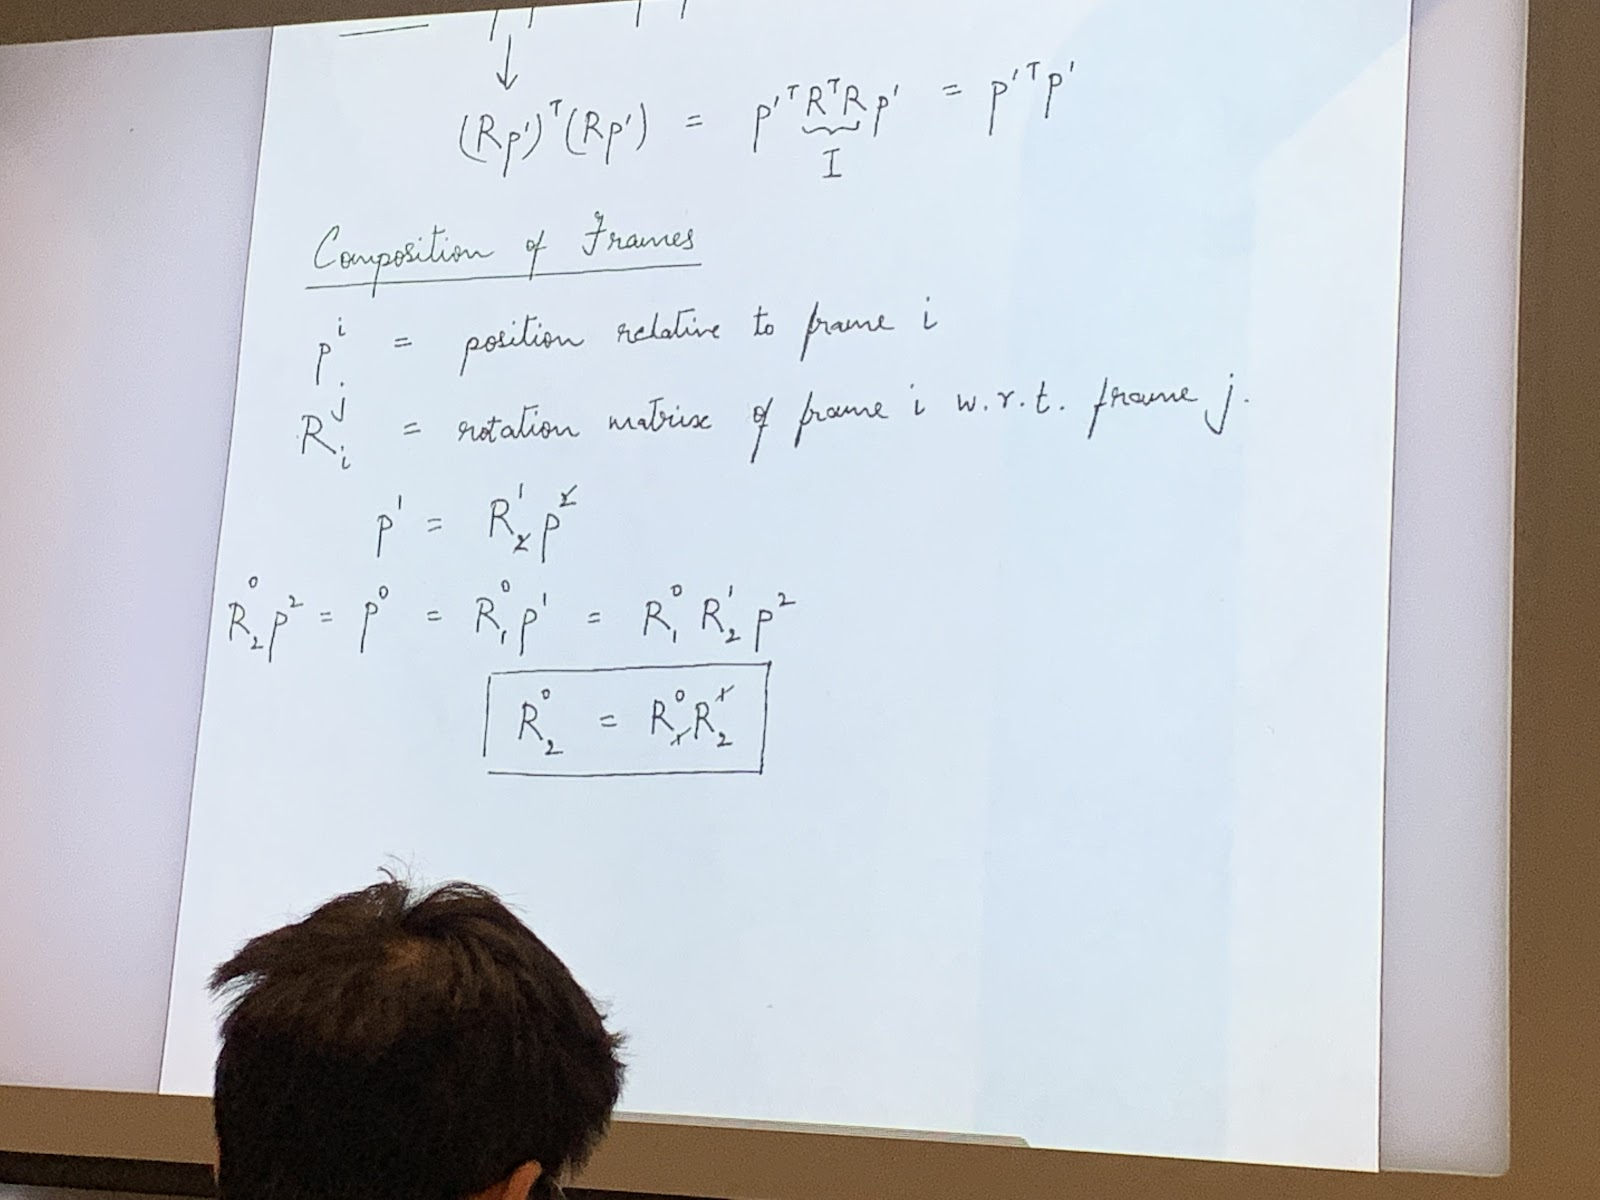 (Rp')ᵀ(Rp') = p'ᵀRᵀRp' = p'ᵀp'
I
Composition of Frames
pⁱ = position relative to frame i
Rᵢʲ = rotation matrix of frame i w.r.t. frame j.
p¹ = R₂¹p²
R₂⁰p² = p⁰ = R₁⁰p¹ = R₁⁰R₂¹p²
R₂⁰ = R₁⁰R₂¹